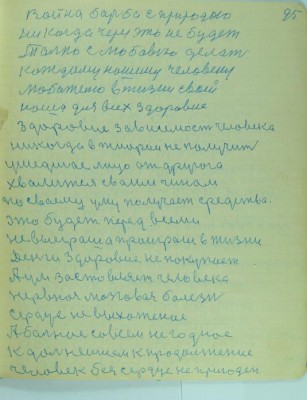 95
Война барба с природаю
никогда через это не будет
Толко с Любовью делат
каждаму нашиму человеку
Любателю в жизни своей
наша для всех здоровие
Здоровие зависимост человека
никогда в теории не получит
умершее лицо от другога
хвалится сваим чинам
по своему уму получает средства.
Это будет перед всеми
не виграш а програш в жизни
Денги здоровие не покупает
А ум заставляет человека
нервная мозговая болезн
сердце не вихоженое
А балное совсем не годное
к далнейшем к продолжение
человек без сердце не пригоден